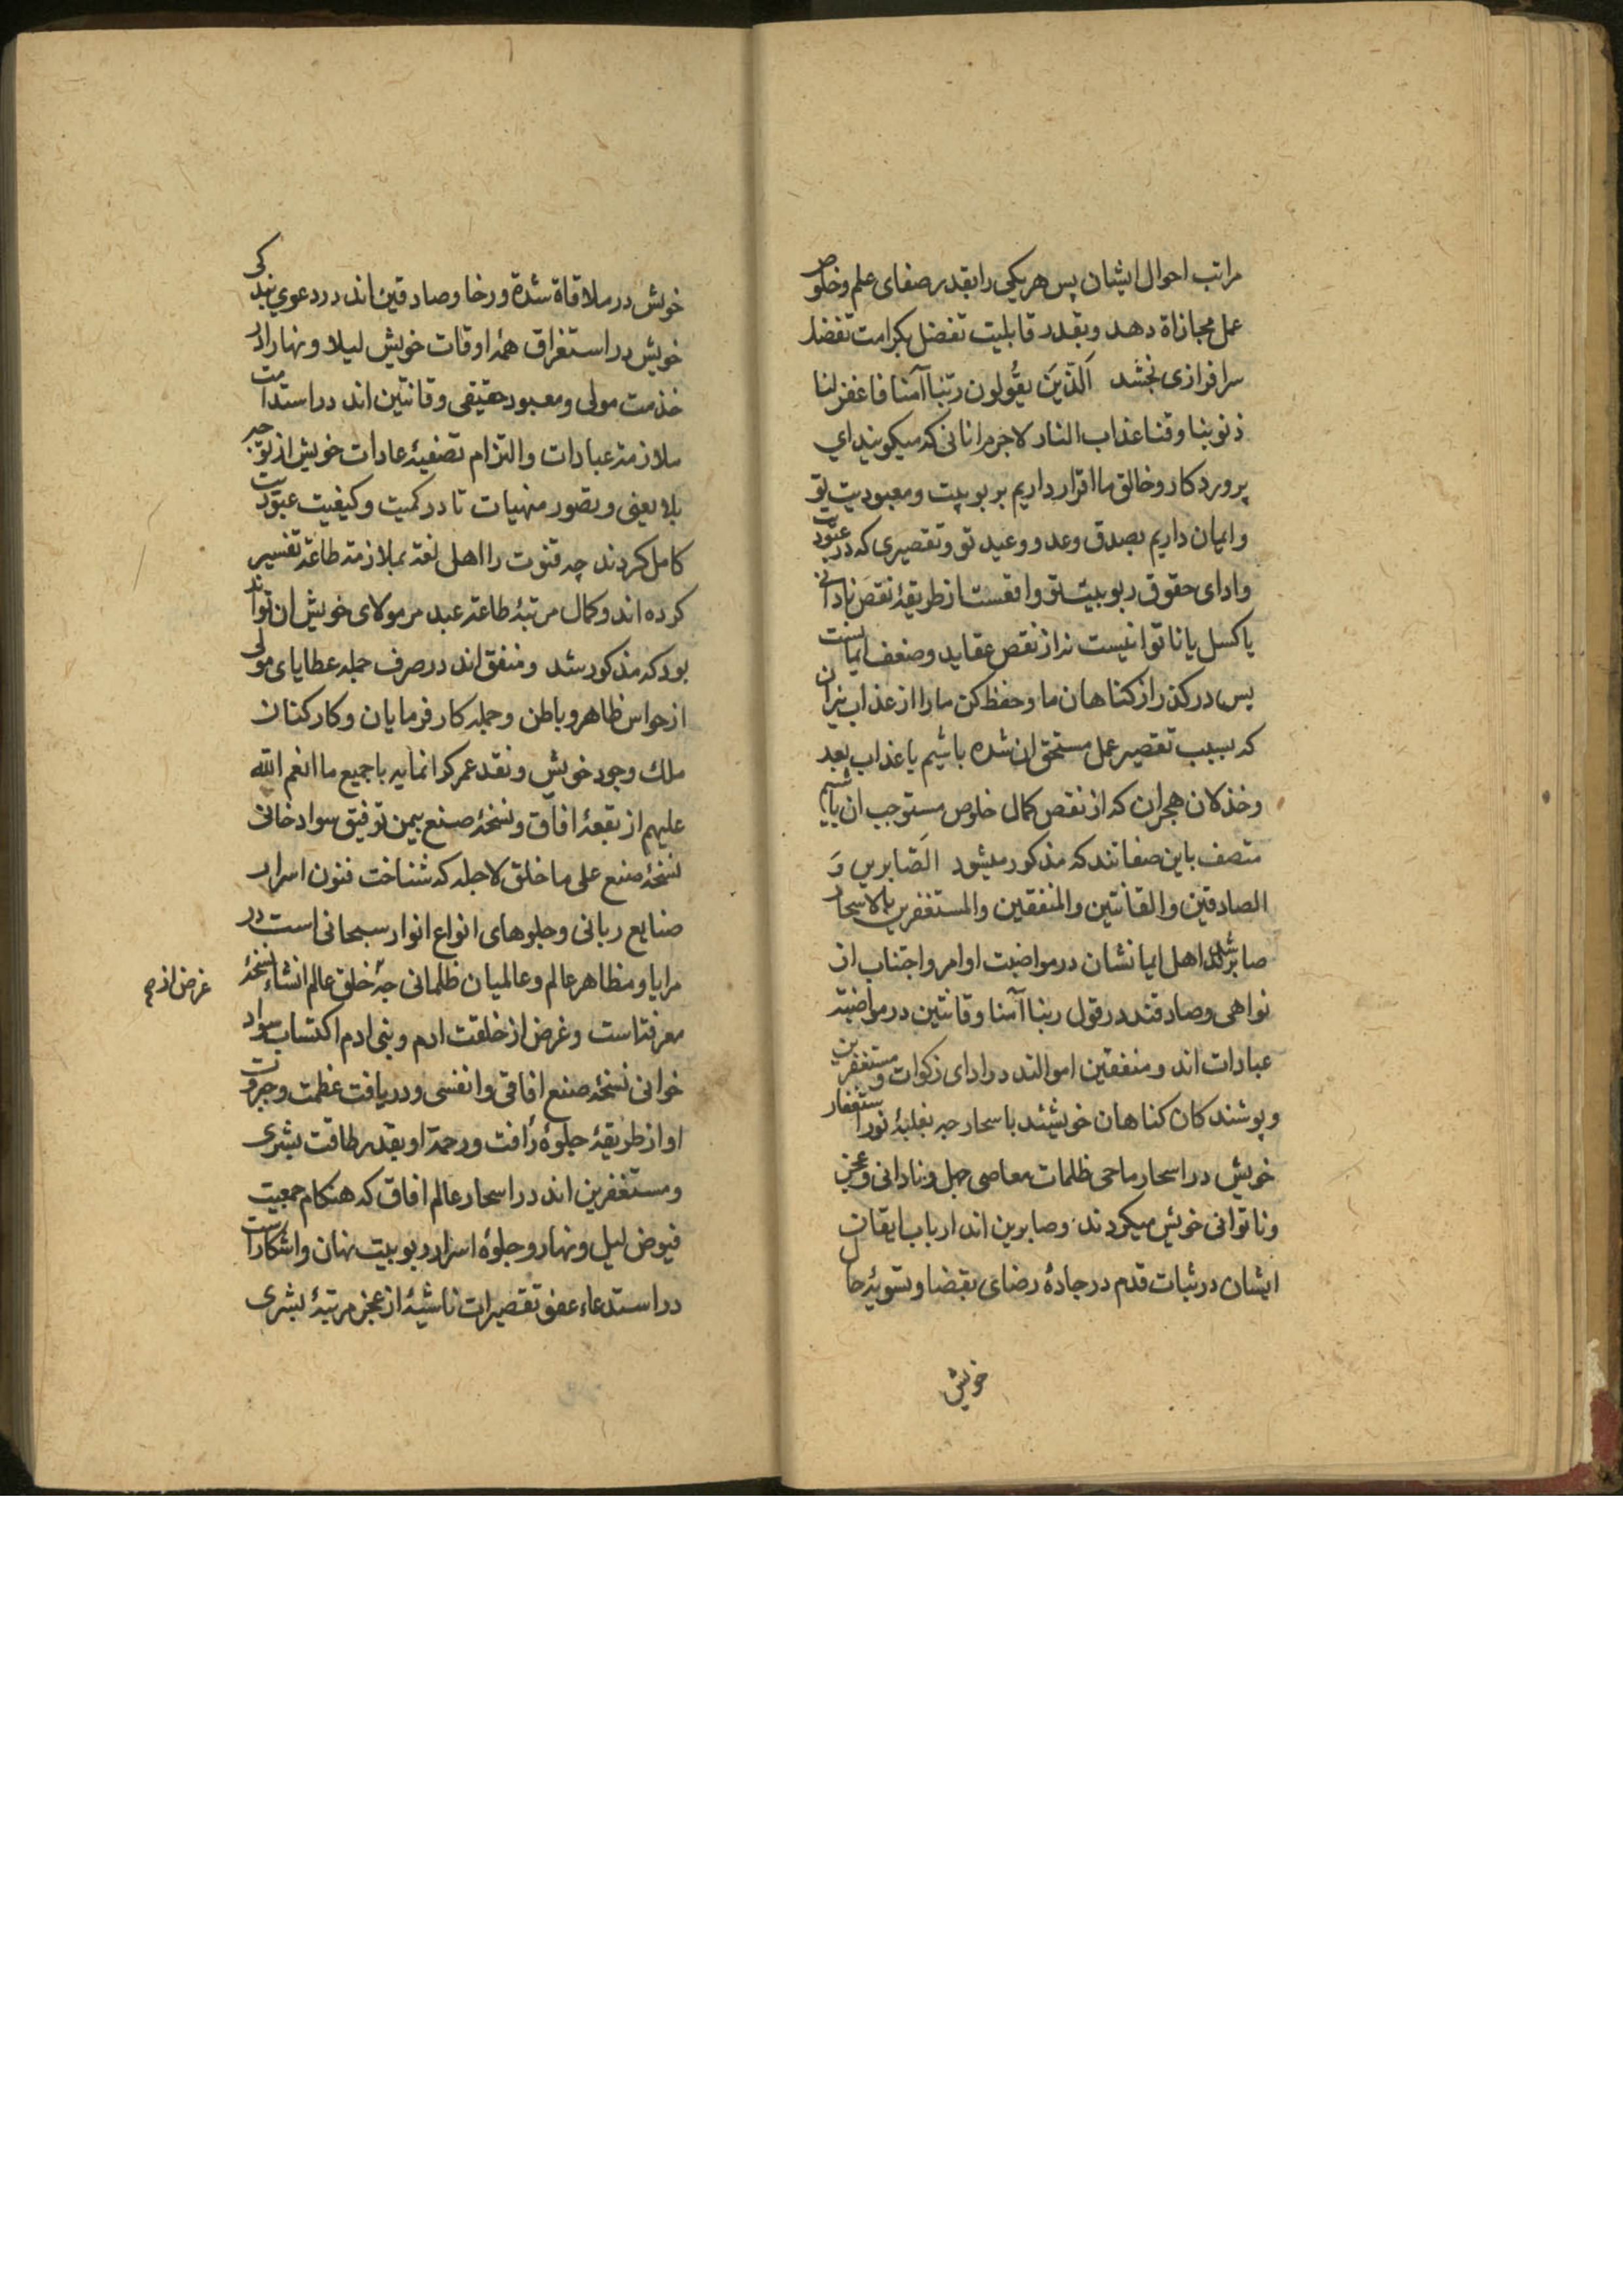 مراتب احوال ایشان پس هر یکی را بقدر صفای علم و خلوص
عمل مجازاة دهد و بقدر قابلیت تفضل بکرامت تفضلا
سرافرازی بخشد اَلَّذینَ یقُولون ربّنا آمنا فاغفر لنا
ذنوبنا وقنا عذاب النار لاجرم انانی که میکویند ای
پروردکار و خالق ما اقرار داریم بربوبیت و معبودیت تو
و ایمان داریم بصدق وعد و وعید تو و تقصیری که در عبودیت
و ادای حقوق ربوبیت تو واقعست از طریقهٔ نقص نادانی
یا کسل یا ناتوانیست نه از نقص عقاید و ضعف ایمانست
پس درکذر از کناهان ما و حفظ کن ما را از عذاب نیران
که بسبب تقصیر عمل مستحق ان شده باشیم یا عذاب بعد
و خذلان هجران که از نقص کمال خلوص مستوجب ان باشیم
متصف باین صفاتند که مذکور میشود الَصّابرین وَ
الصادقین والقانتین والمنفقین والمستغفرین بالاسحار
صابرند اهل ایمانشان در مواضبت اوامر و اجتناب از
نواهی و صادقند در قول ربنا آمنا و قانتین در مواضبة
عبادات اند و منفقین اموالند در ادای زکوات و مستغفرین
و پوشندکان کناهان خویشند باسحار چه بغلبهٔ نور استغفار
خویش در اسحار ماحی ظلمات معاصی جهل و نادانی و عجز
و ناتوانی خویش میکردند و صابرین اند ارباب ایقان
ایشان در ثبات قدم در جادهٔ رضای بقضا و تسویهٔ حال
خویش
خویش در ملاقاة شدة و رخا و صادقین اند در دعوی بندکی
خویش در استغراق همهٔ اوقات خویش لیلا و نهارا در
خدمت مولی و معبود حقیقی و قانتین اند در استدامت
ملازمة عبادات و التزام تصفیهٔ عادات خویش از توجه
بلا یعنی و تصور منهیات تا در کمیت و کیفیت عبودیت
کامل کردند چه قنوت را اهل لغة بملازمة طاعة تفسیر
کرده اند و کمال مرتبهٔ طاعة عبد مر مولای خویش ان تواند
بود که مذکور شد و منفق اند در صرف جمله عطایای مولی
از حواس ظاهر و باطن و جمله کارفرمایان و کارکنان
ملك وجود خویش و نقد عمر کرانمایه با جمیع ما انعم الله
علیهم از بقعهٔ افاق و نسخهٔ صنع بیمن توفیق سواد خانی
نسخهٔ صنع علی ما خلق لاجله که شناخت فنون اسرار
صنایع ربانی و جلوهای انواع انوار سبحانی است در
مرایا و مظاهر عالم و عالمیان ظلمانی چه خلق عالم انشاء نسخهٔ
غرض از
معرفتست و غرض از خلقت ادم و بنی ادم اکتساب سواد
خوانی نسخهٔ صنع افاقی و انفسی و دریافت عظمت و جبروت
او از طریقهٔ جلوهٔ رأفت و رحمة او بقدر طاقت بشری
و مستغفرین اند در اسحار عالم افاق که هنکام جمعیت
فیوض لیل و نهار و جلوهٔ اسرار ربوبیت نهان و اشکاراست
در استدعاء عفو تقصیرات ناشیهٔ از عجز مرتبهٔ بشری